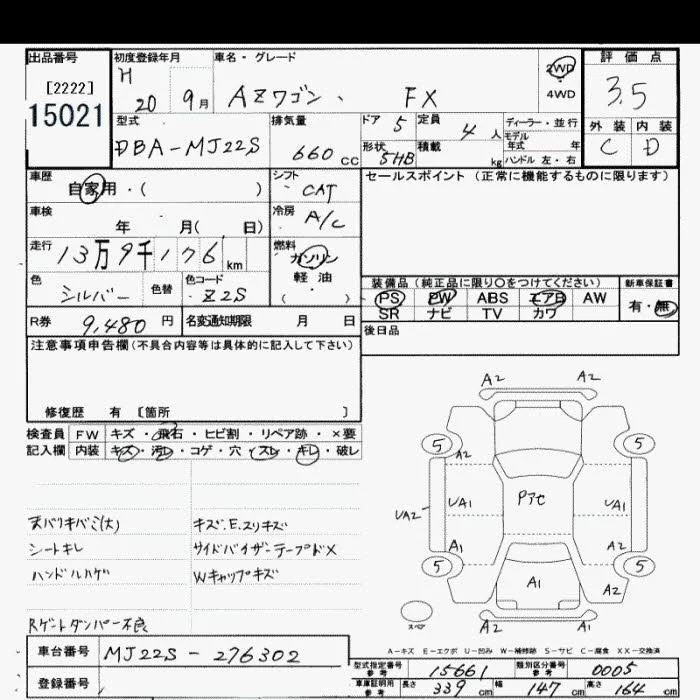 出品番号 初度登録年月 車名・グレード 評価点
[2222] H 20 9月 AZワゴン、 FX 2WD 4WD 3.5
15021
型式 排気量 ドア 5 定員 4人 ディーラー・並行 外装 内装
DBA-MJ22S 660cc 形状 5HB 積載 kg モデル年式 年 C D
ハンドル左・右
車歴 シフト セールスポイント(正常に機能するものに限ります)
自家用・( ) CAT
車検 冷房
年 月( 日) A/C
走行 燃料
13万9千176km ガソリン
軽・油
( )
色 色替 色コード 装備品(純正品に限り○をつけてください) 新車保証書
シルバー Z2S PS PW ABS エアB AW 有・無
SR ナビ TV カワ
R券 9,480円 名変通知期限 月 日 後日品
注意事項申告欄(不具合内容等は具体的に記入して下さい)
修復歴 有 [箇所 ]
検査員 FW キズ・飛石・ヒビ割・リペア跡・×要
記入欄 内装 キズ・汚レ・コゲ・穴・スレ・キレ・破レ
A2 A2
5 5
A2
UA1 Pアセ UA1
UA2
A1 A2
5 5
A1 A2
スペア
A2 A2
天バリキバミ(大) キズ.E.スリキズ
シートキレ サイドバイザーテープドX
ハンドルハゲ Wキャップキズ
Rゲートダンパー不良
A-キズ E-エクボ U-凹み W-補修跡 S-サビ C-腐食 XX-交換済
車台番号 MJ22S-276302
登録番号
型式指定番号 参考 15661 類別区分番号 参考 0005
車庫証明用 参考 長さ 339cm 幅 147cm 高さ 164cm